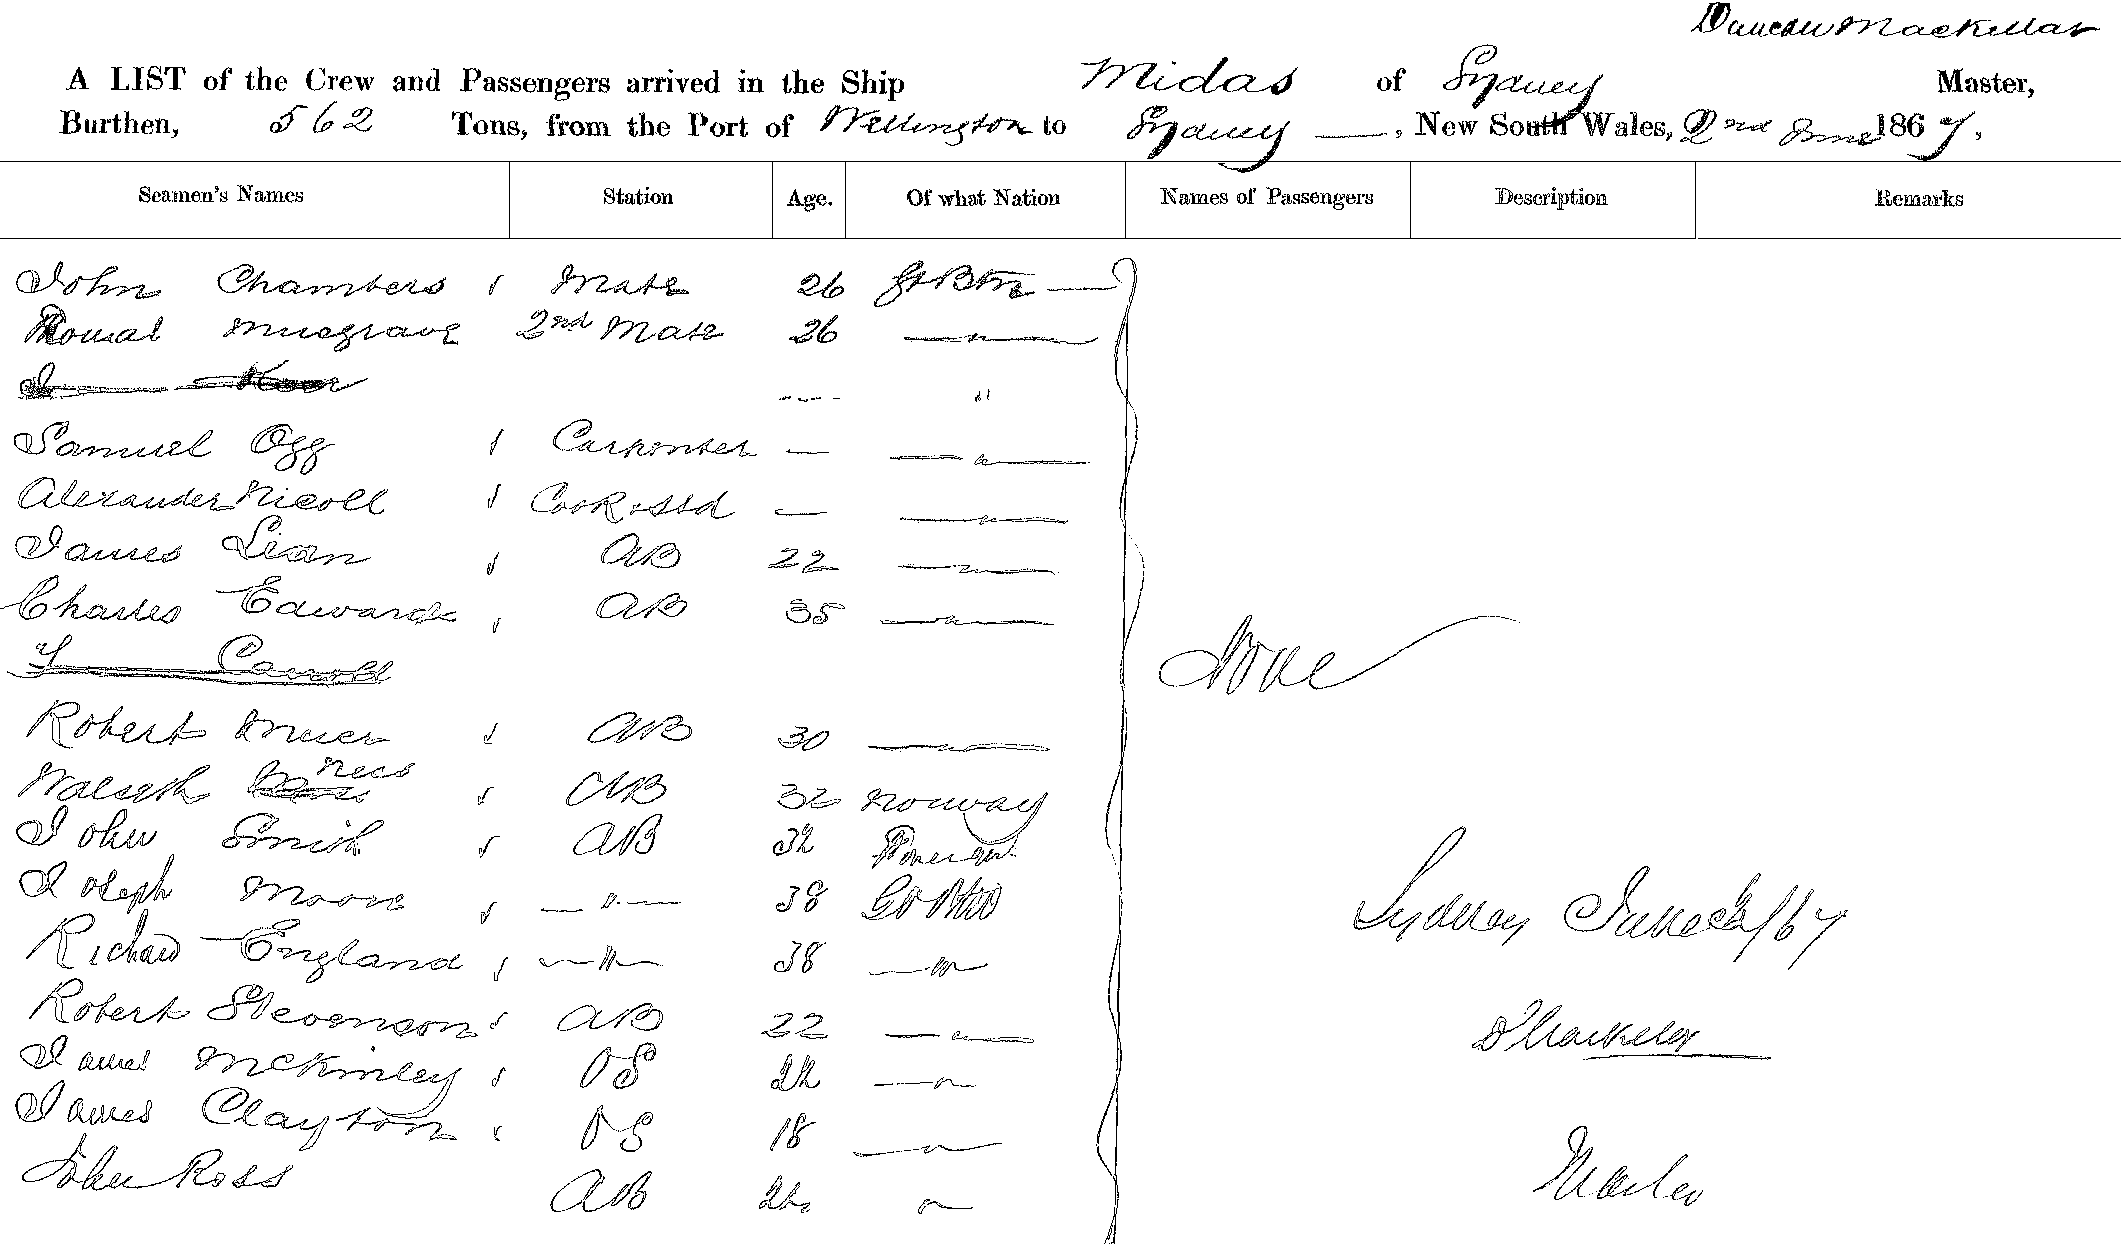 Duncan Mackellar
A LIST of the Crew and Passengers arrived in the Ship Midas of Sydney Master,
Burthen, 562 Tons, from the Port of Wellington to Sydney —, New South Wales, 2nd June 1867,
Seamen's Names Station Age. Of what Nation Names of Passengers Description Remarks
John Chambers Mate 26 Gt Btn —
Thomas Musgrave 2nd Mate 26 — " —
J "
Samuel Ogg Carpenter — — " —
Alexander Nicoll Cook & Std — — " —
James Lean AB 22 — " —
Charles Edwards AB 35 — " —
None
Carroll
Robert AB 30 — " —
AB 32 Norway
John Smith AB 32
Joseph Moore — " — 38 Gt Btn
Sydney June 2/67
Richard England — " — 38 — " —
Robert Stevenson AB 22 — " —
D Mackellar
James McKinley OS 22 — " —
James Clayton OS 18 — " —
Master
John Ross AB "